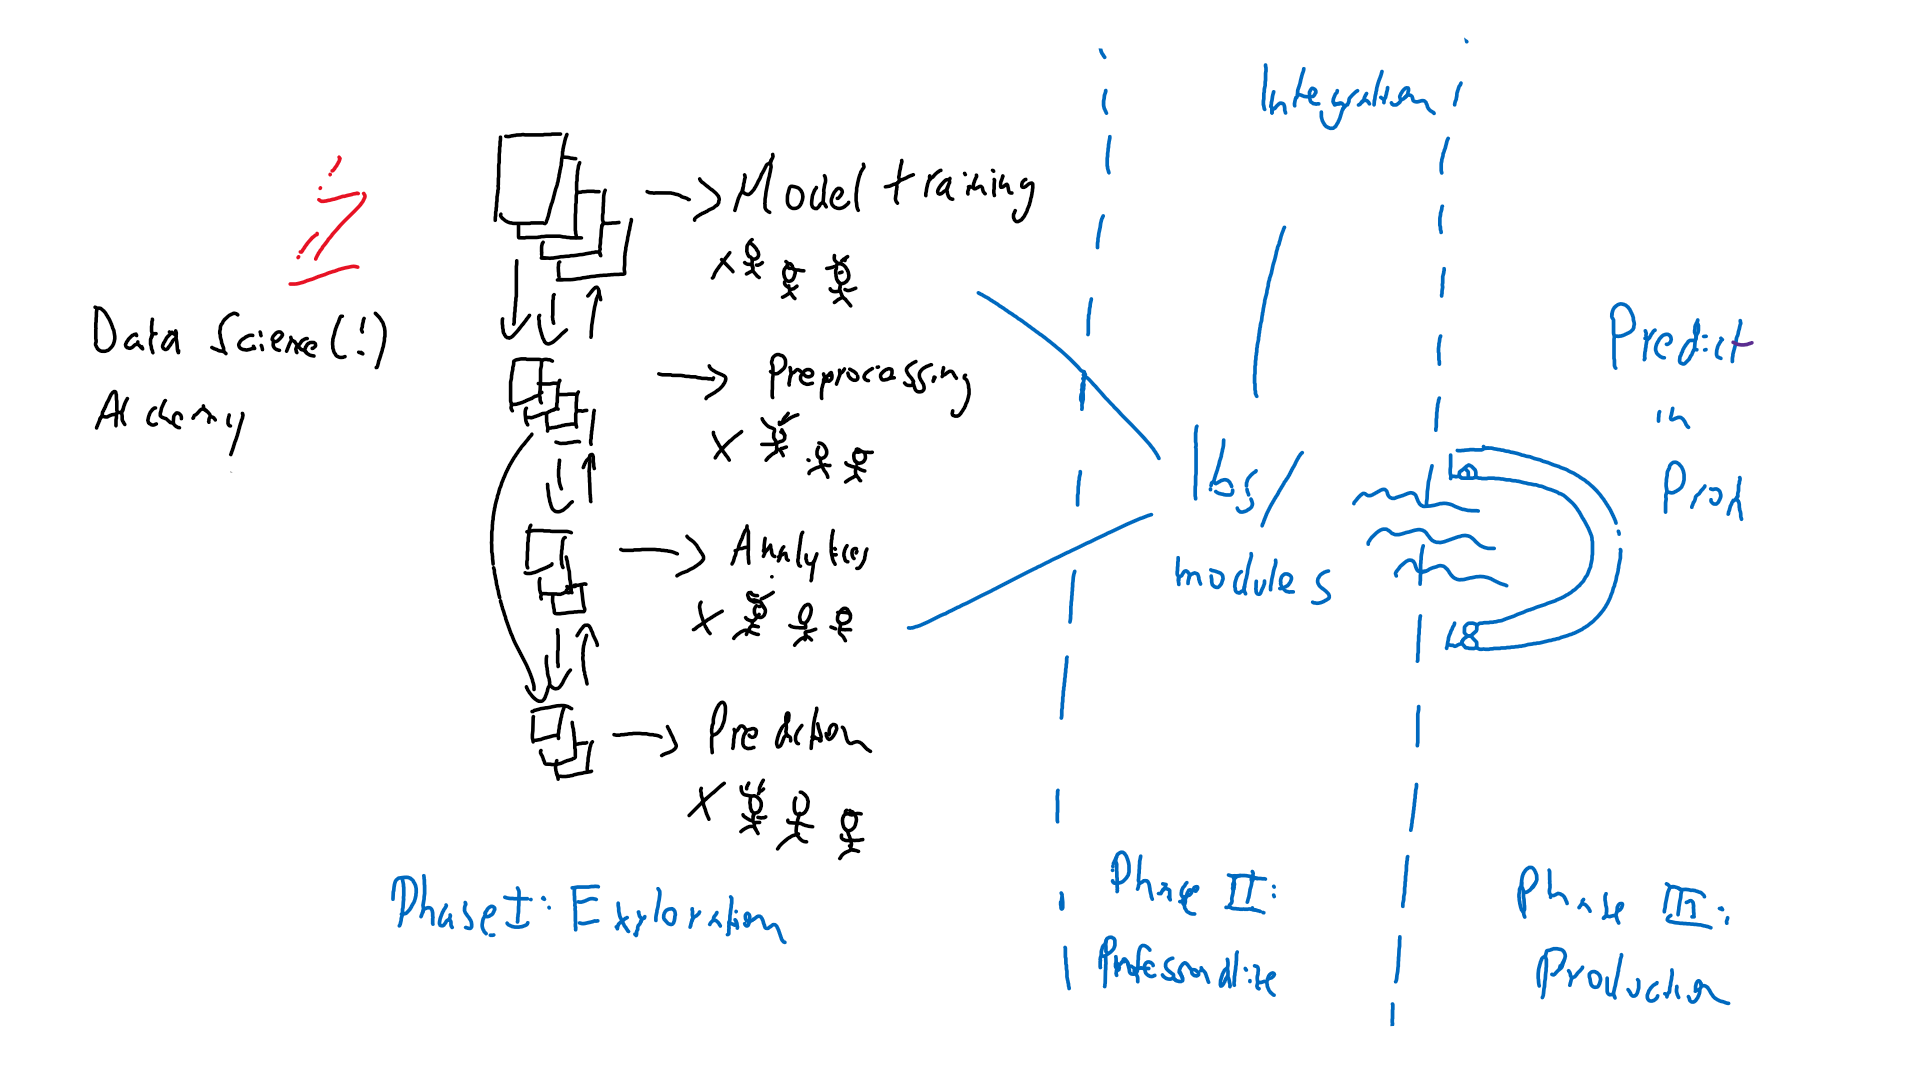 Data Science(!)
Alchemy
Model training
x
Preprocessing
x
Analytics
x
Prediction
x
Phase I: Exploration
Integration
libs/
modules
Phase II:
Professionalize
Predict
in
Prod
Phase III:
Production